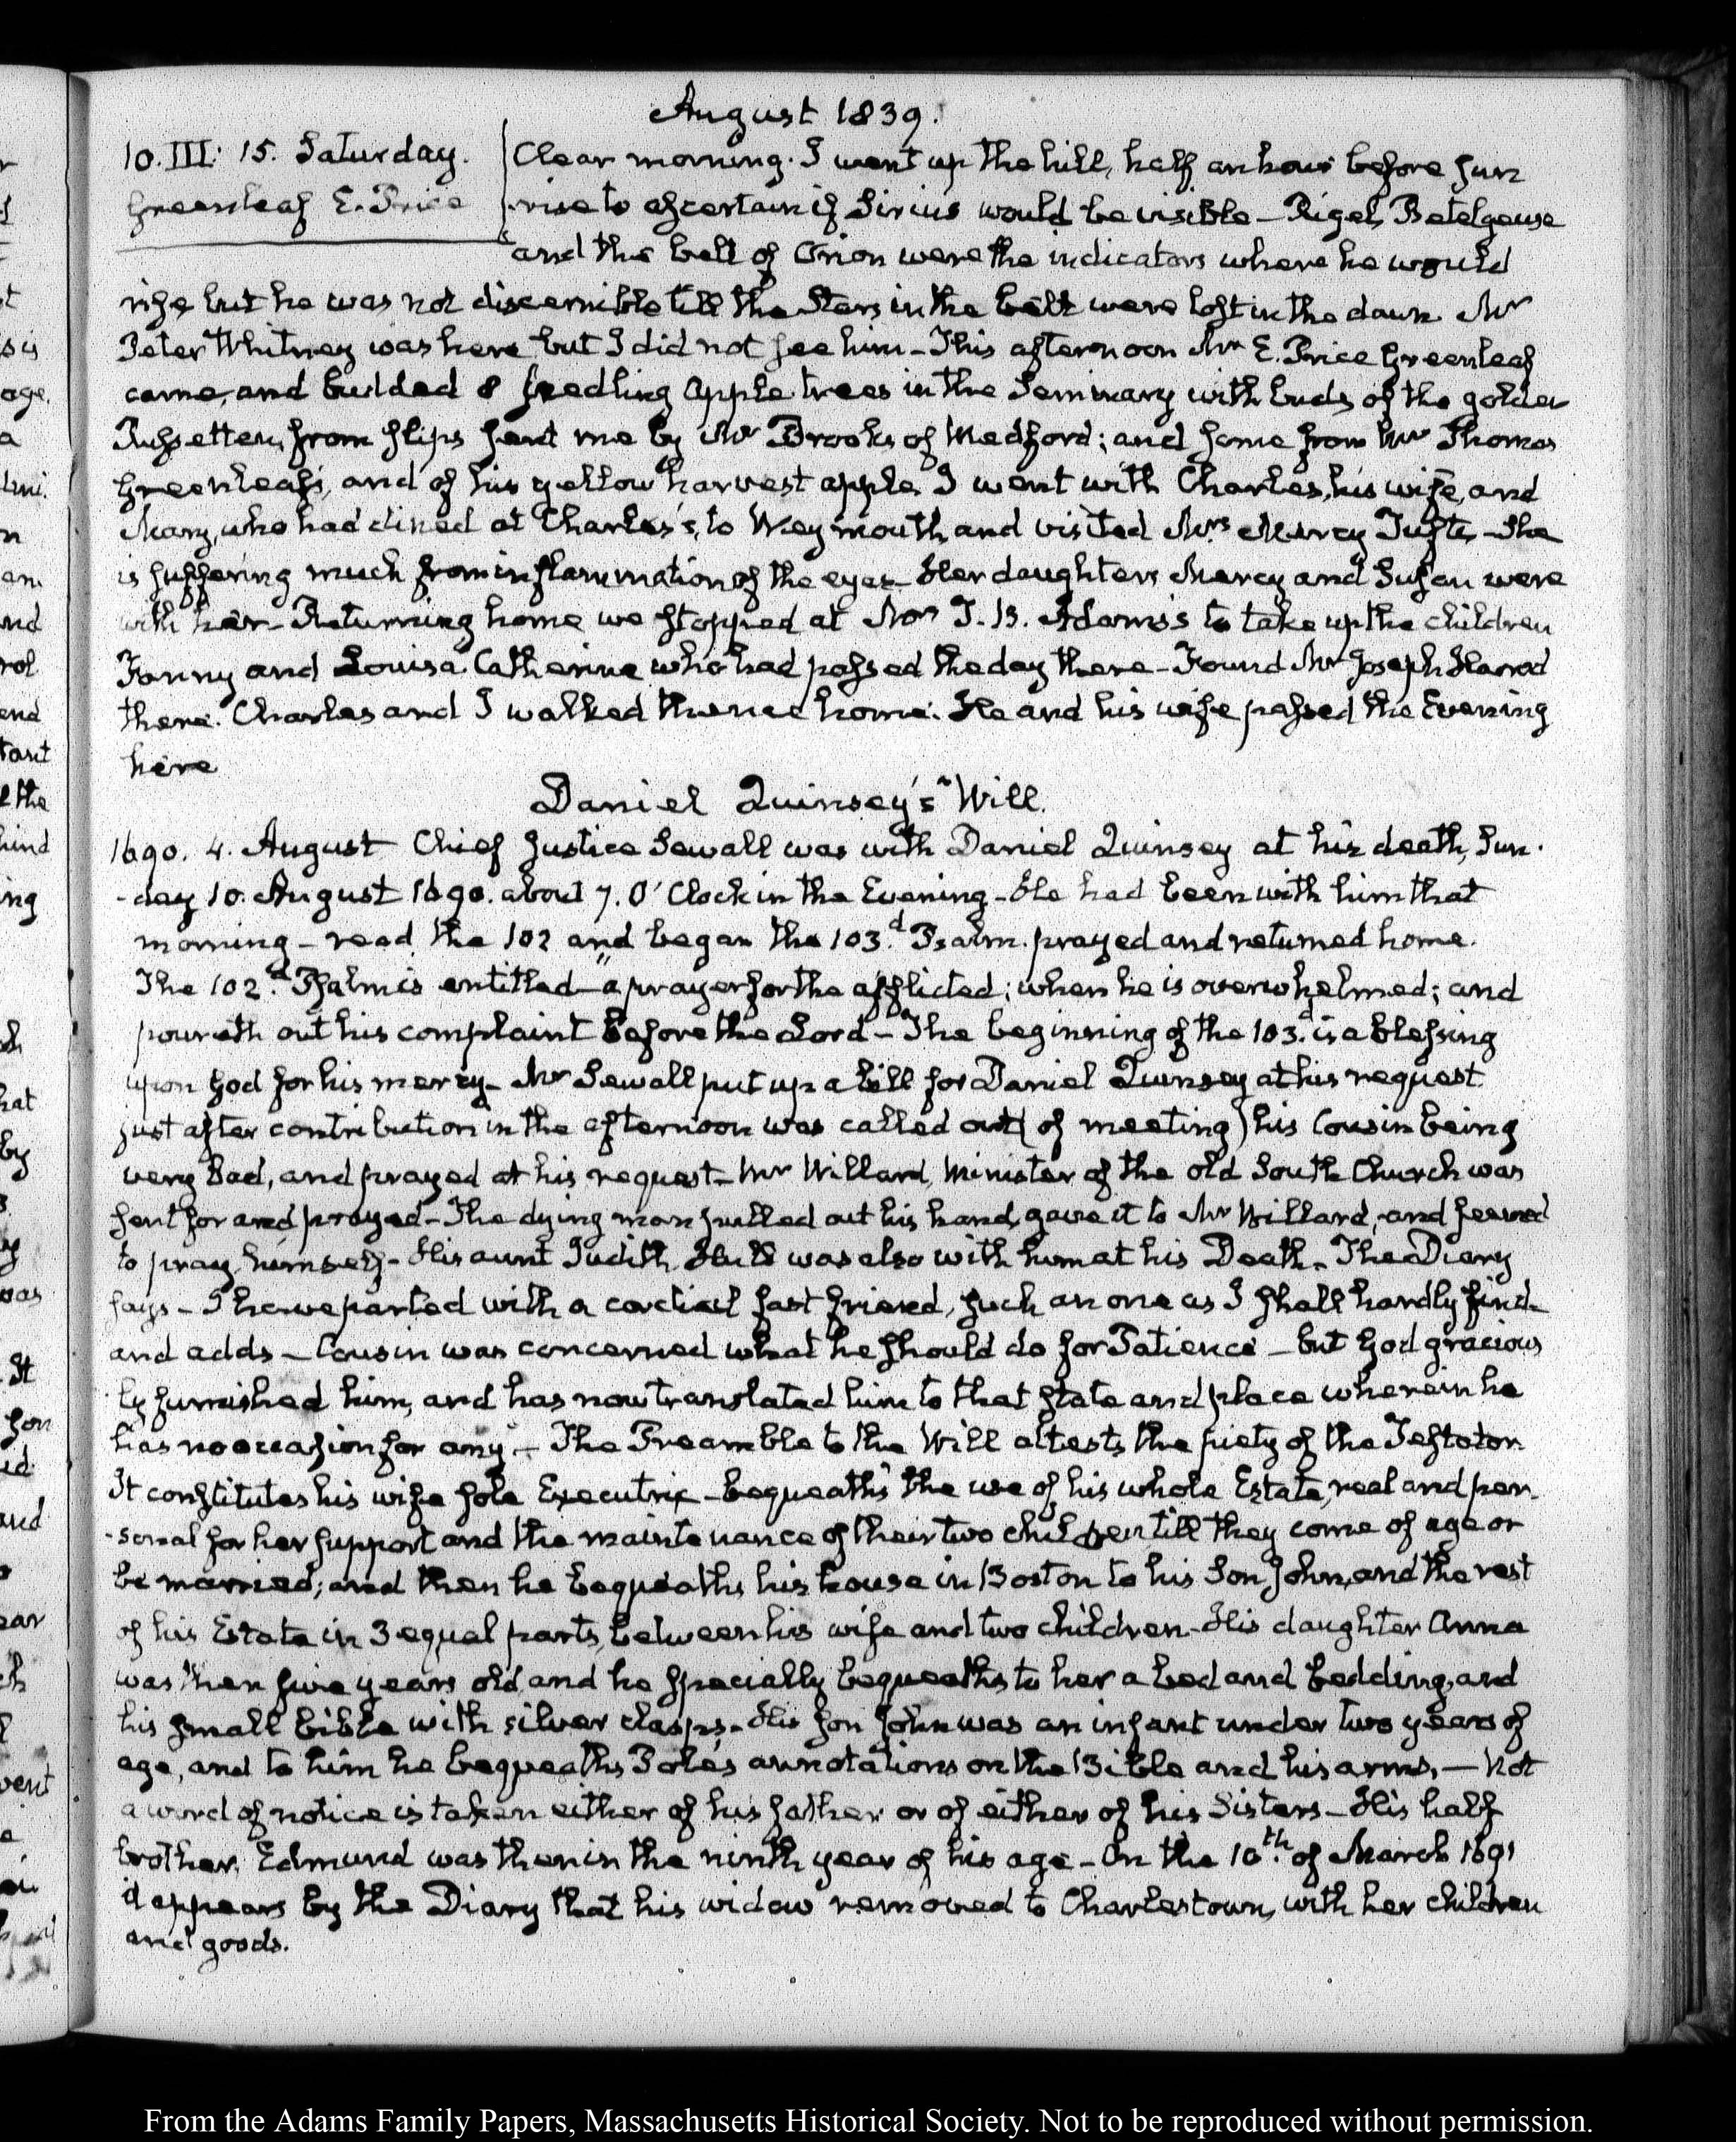 August 1839.
10. III: 15. Saturday.
Greenleaf E. Price
Clear morning. I went up the hill, half an hour before Sun
rise to ascertain if Sirius would be visible - Rigel, Betelgeuse
and the belt of Orion were the indicators where he would
rise but he was not discernible till the Stars in the belt were lost in the dawn. Mr
Peter Whitney was here but I did not see him - This afternoon Mr E. Price Greenleaf
came, and budded 8 seedling apple trees in the Seminary with buds of the golden
Russetten, from slips sent me by Mr Brooks of Medford; and some from Mr Thomas
Greenleaf's, and of his yellow harvest apple. I went with Charles, his wife, and
Mary, who had dined at Charles's, to Weymouth and visited Mrs Mercy Tufts - She
is suffering much from inflammation of the eyes - Her daughters Mercy and Susan were
with her - Returning home we stopped at Mrs T. B. Adams's to take up the children
Fanny and Louisa Catherine who had passed the day there - Found Mr Joseph Harrod
there. Charles and I walked thence home. He and his wife passed the Evening
here
Daniel Quinsey's Will.
1690. 4. August Chief Justice Sewall was with Daniel Quinsey at his death, Sun-
-day 10. August 1690. about 7. O'Clock in the Evening - He had been with him that
morning - read the 102 and began the 103.d Psalm. prayed and returned home.
The 102.d Psalm is entitled - "a prayer for the afflicted; when he is overwhelmed; and
poureth out his complaint before the Lord - The beginning of the 103.d is a blessing
upon God for his mercy - Mr Sewall put up a bill for Daniel Quinsey at his request
just after contribution in the afternoon was called out (of meeting) his Cousin being
very Bad, and prayed at his request - Mr Willard, Minister of the old South Church was
sent for and prayed - The dying man pulled out his hand, gave it to Mr Willard, and seemed
to pray himself - His aunt Judith Hull was also with him at his Death. The Diary
says - I have parted with a cordial fast friend, such an one as I shall hardly find -
and adds - Cousin was concerned what he should do for Patience - but God gracious
ly furnished him, and has now translated him to that state and place wherein he
has no occasion for any - The Preamble to the Will attests the piety of the Testator.
It constitutes his wife sole Executrix - bequeaths the use of his whole Estate, real and per-
-sonal for her support and the maintenance of their two children till they come of age or
be married; and then he bequeaths his house in Boston to his Son John, and the rest
of his Estate in 3 equal parts, between his wife and two children - His daughter Anna
was then five years old and he specially bequeaths to her a bed and bedding, and
his small bible with silver clasps - His son John was an infant under two years of
age, and to him he bequeaths Pole's annotations on the Bible and his arms. — Not
a word of notice is taken either of his father or of either of his Sisters - His half
brother, Edmund was then in the ninth year of his age - On the 10th of March 1691
it appears by the Diary that his widow removed to Charlestown, with her children
and goods.
From the Adams Family Papers, Massachusetts Historical Society. Not to be reproduced without permission.